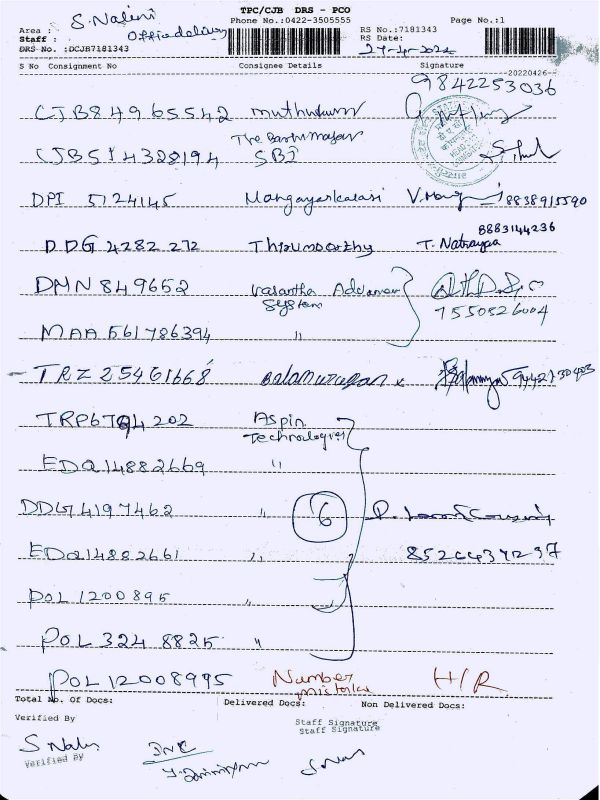 TPC/CJB DRS - PCO
S. Nalini
Office delivery
Phone No.:0422-3505555
Page No.:1
Area :
Staff :
DRS No. :DCJB7181343
RS No.:7181343
RS Date:
27-4-2022
S No Consignment No Consignee Details Signature
--20220426--
9842253036
CJB84965542 muthukumar
CJB514328194 SBI
DPI 5124145 Mangayarkarasi V.Mang 8838915590
8883144236
DDG 4282 272 Thirumoorthy T. Natraypa
DMN 849652 Vasantha Advance
System
7550526004
MAA 561786394 "
TRZ 25461668 Balamurugan x 9442130403
TRP6794202 Aspin
Technologies
EDQ14882669 "
DDG4197462 " 6
EDQ14882661 " 8526437237
POL 1200895
POL 324 8825 "
POL 12008995 Number mistake H/R
Total No. Of Docs: Delivered Docs: Non Delivered Docs:
Verified By Staff Signature
Staff Signature
S Nalini
Verified By